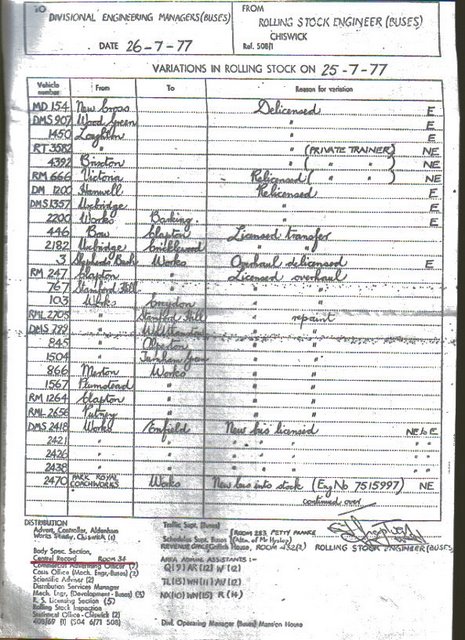 TO DIVISIONAL ENGINEERING MANAGERS (BUSES)
DATE 26-7-77
FROM
ROLLING STOCK ENGINEER (BUSES)
CHISWICK
Ref. 508/1
VARIATIONS IN ROLLING STOCK ON 25-7-77
Vehicle number From To Reason for variation
MD 154 New Cross Delicensed E
DMS 907 Wood Green " E
1450 Loughton " E
RT 3382 " " (PRIVATE TRAINER) NE
4392 Brixton " ( " " ) NE
RM 666 Victoria Relicensed ( " " ) NE
DM 1200 Hanwell Relicensed E
DMS 1357 Uxbridge " E
2200 Works Barking " E
446 Bow Clapton Licensed transfer
2182 Uxbridge Cricklewood " "
3 Shepherds Bush Works Overhaul delicensed E
RM 247 Clapton " Licensed overhaul
767 Stamford Hill " " "
103 Works Croydon " "
RML 2705 " Stamford Hill " repaint
DMS 799 " Walthamstow " "
845 " " "
1504 " Turnham Green " "
866 Merton Works " "
1567 Plumstead " " "
RM 1264 Clapton " " "
RML 2656 Putney " " "
DMS 2418 Works Enfield New bus licensed NE to E
2421 " " " " "
2426 " " " " "
2438 " " " " "
2470 PARK ROYAL COACHWORKS Works New bus into stock (Eng No 7515997) NE
continued over
ROLLING STOCK ENGINEER (BUSES)
DISTRIBUTION
Advert. Controller, Aldenham
Works Steady, Chiswick (2)
Body Spec. Section,
Central Record Room 36
Commercial Advertising Officer (2)
Cost Office (Mech. Engr. Buses) (2)
Scientific Adviser (2)
Distribution Services Manager
Mech. Engr. (Development - Buses) (3)
R. S. Licensing Section (5)
Rolling Stock Inspection
Statistical Office - Chiswick (2)
408/69 (504 6/71 508)
Traffic Supt. (Buses)
Schedules Supt. (Buses) (ROOM 283 PETTY FRANCE (Attn. of Mr Hyslop)
REVENUE OFFICE Griffith House, ROOM
AREA ADMIN ASSISTANTS :-
Divl. Operating Manager (Buses) Mansion House